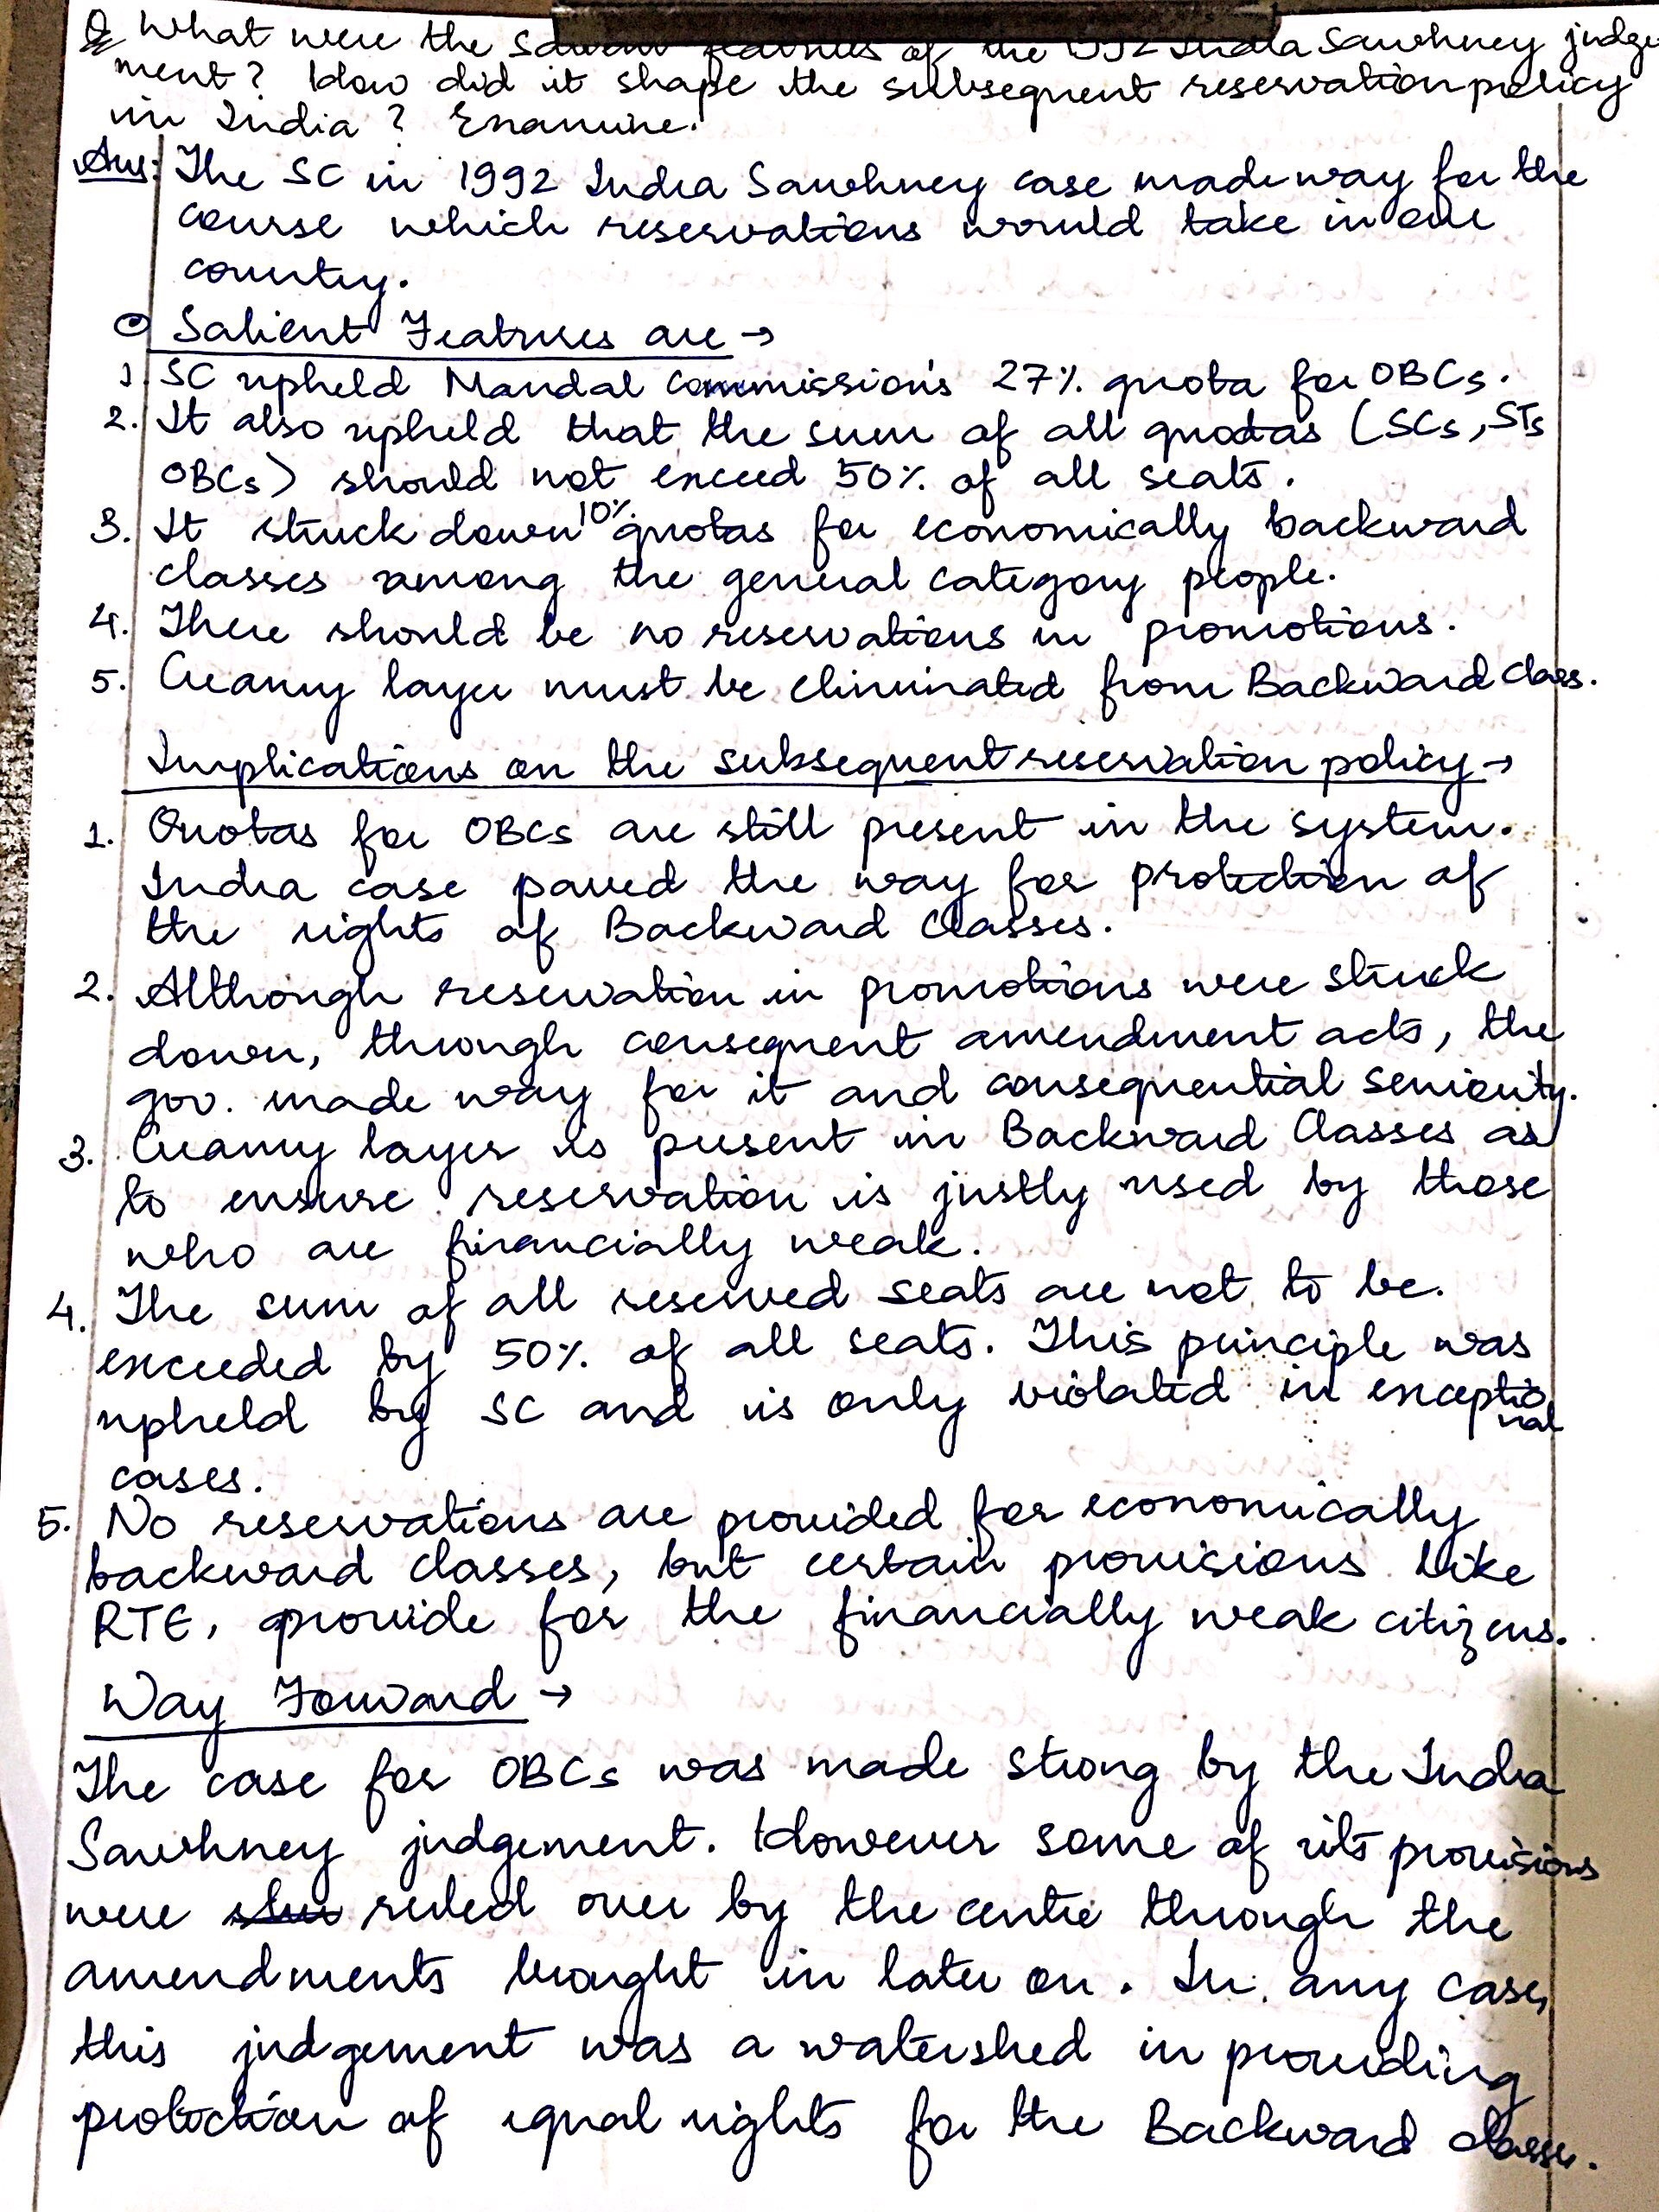 Q What were the salient features of the 1992 Indra Sawhney judge-
ment? How did it shape the subsequent reservation policy
in India? Examine.
Ans: The SC in 1992 Indra Sawhney case made way for the
course which reservations would take in our
country.
Salient Features are →
1. SC upheld Mandal Commission's 27% quota for OBCs.
2. It also upheld that the sum of all quotas (SCs, STs
OBCs) should not exceed 50% of all seats.
3. It struck down 10% quotas for economically backward
classes among the general category people.
4. There should be no reservations in promotions.
5. Creamy layer must be eliminated from Backward Class.
Implications on the subsequent reservation policy →
1. Quotas for OBCs are still present in the system.
Indra case paved the way for protection of
the rights of Backward Classes.
2. Although reservation in promotions were struck
down, through consequent amendment acts, the
gov. made way for it and consequential seniority.
3. Creamy layer is present in Backward Classes as
to ensure reservation is justly used by those
who are financially weak.
4. The sum of all reserved seats are not to be
exceeded by 50% of all seats. This principle was
upheld by SC and is only violated in exceptional
cases.
5. No reservations are provided for economically
backward classes, but certain provisions like
RTE, provide for the financially weak citizens.
Way Forward →
The case for OBCs was made strong by the Indra
Sawhney judgement. However some of its provisions
were ruled over by the centre through the
amendments brought in later on. In any case,
this judgement was a watershed in providing
protection of equal rights for the Backward classes.